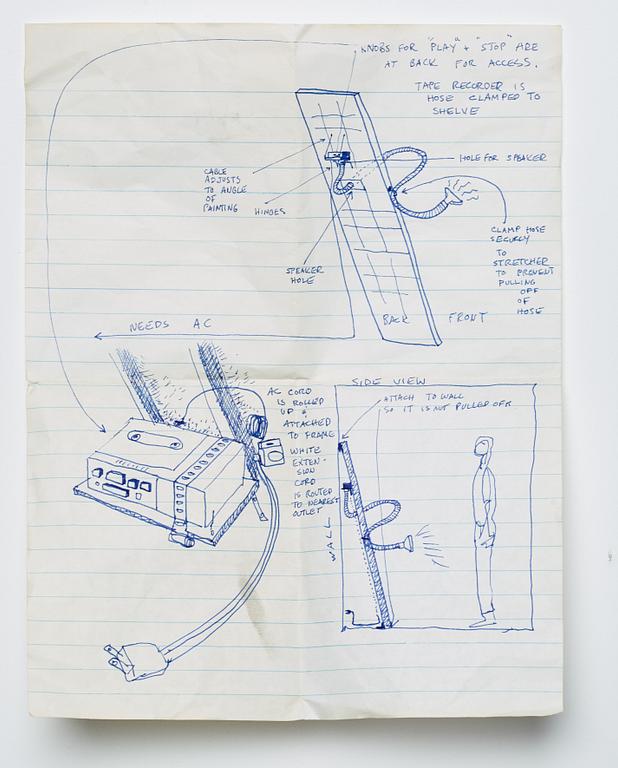 KNOBS FOR "PLAY" + "STOP" ARE
AT BACK FOR ACCESS.
TAPE RECORDER IS
HOSE CLAMPED TO
SHELVE
HOLE FOR SPEAKER
CABLE
ADJUSTS
TO ANGLE
OF
PAINTING
HINGES
CLAMP HOSE
SECURLY
TO
STRETCHER
TO PREVENT
PULLING
OFF
OF
HOSE
SPEAKER
HOLE
BACK
FRONT
NEEDS AC
AC CORD
IS ROLLED
UP &
ATTACHED
TO FRAME
WHITE
EXTEN-
SION
CORD
IS ROUTED
TO NEAREST
OUTLET
SIDE VIEW
ATTACH TO WALL
SO IT IS NOT PULLED OFF
WALL